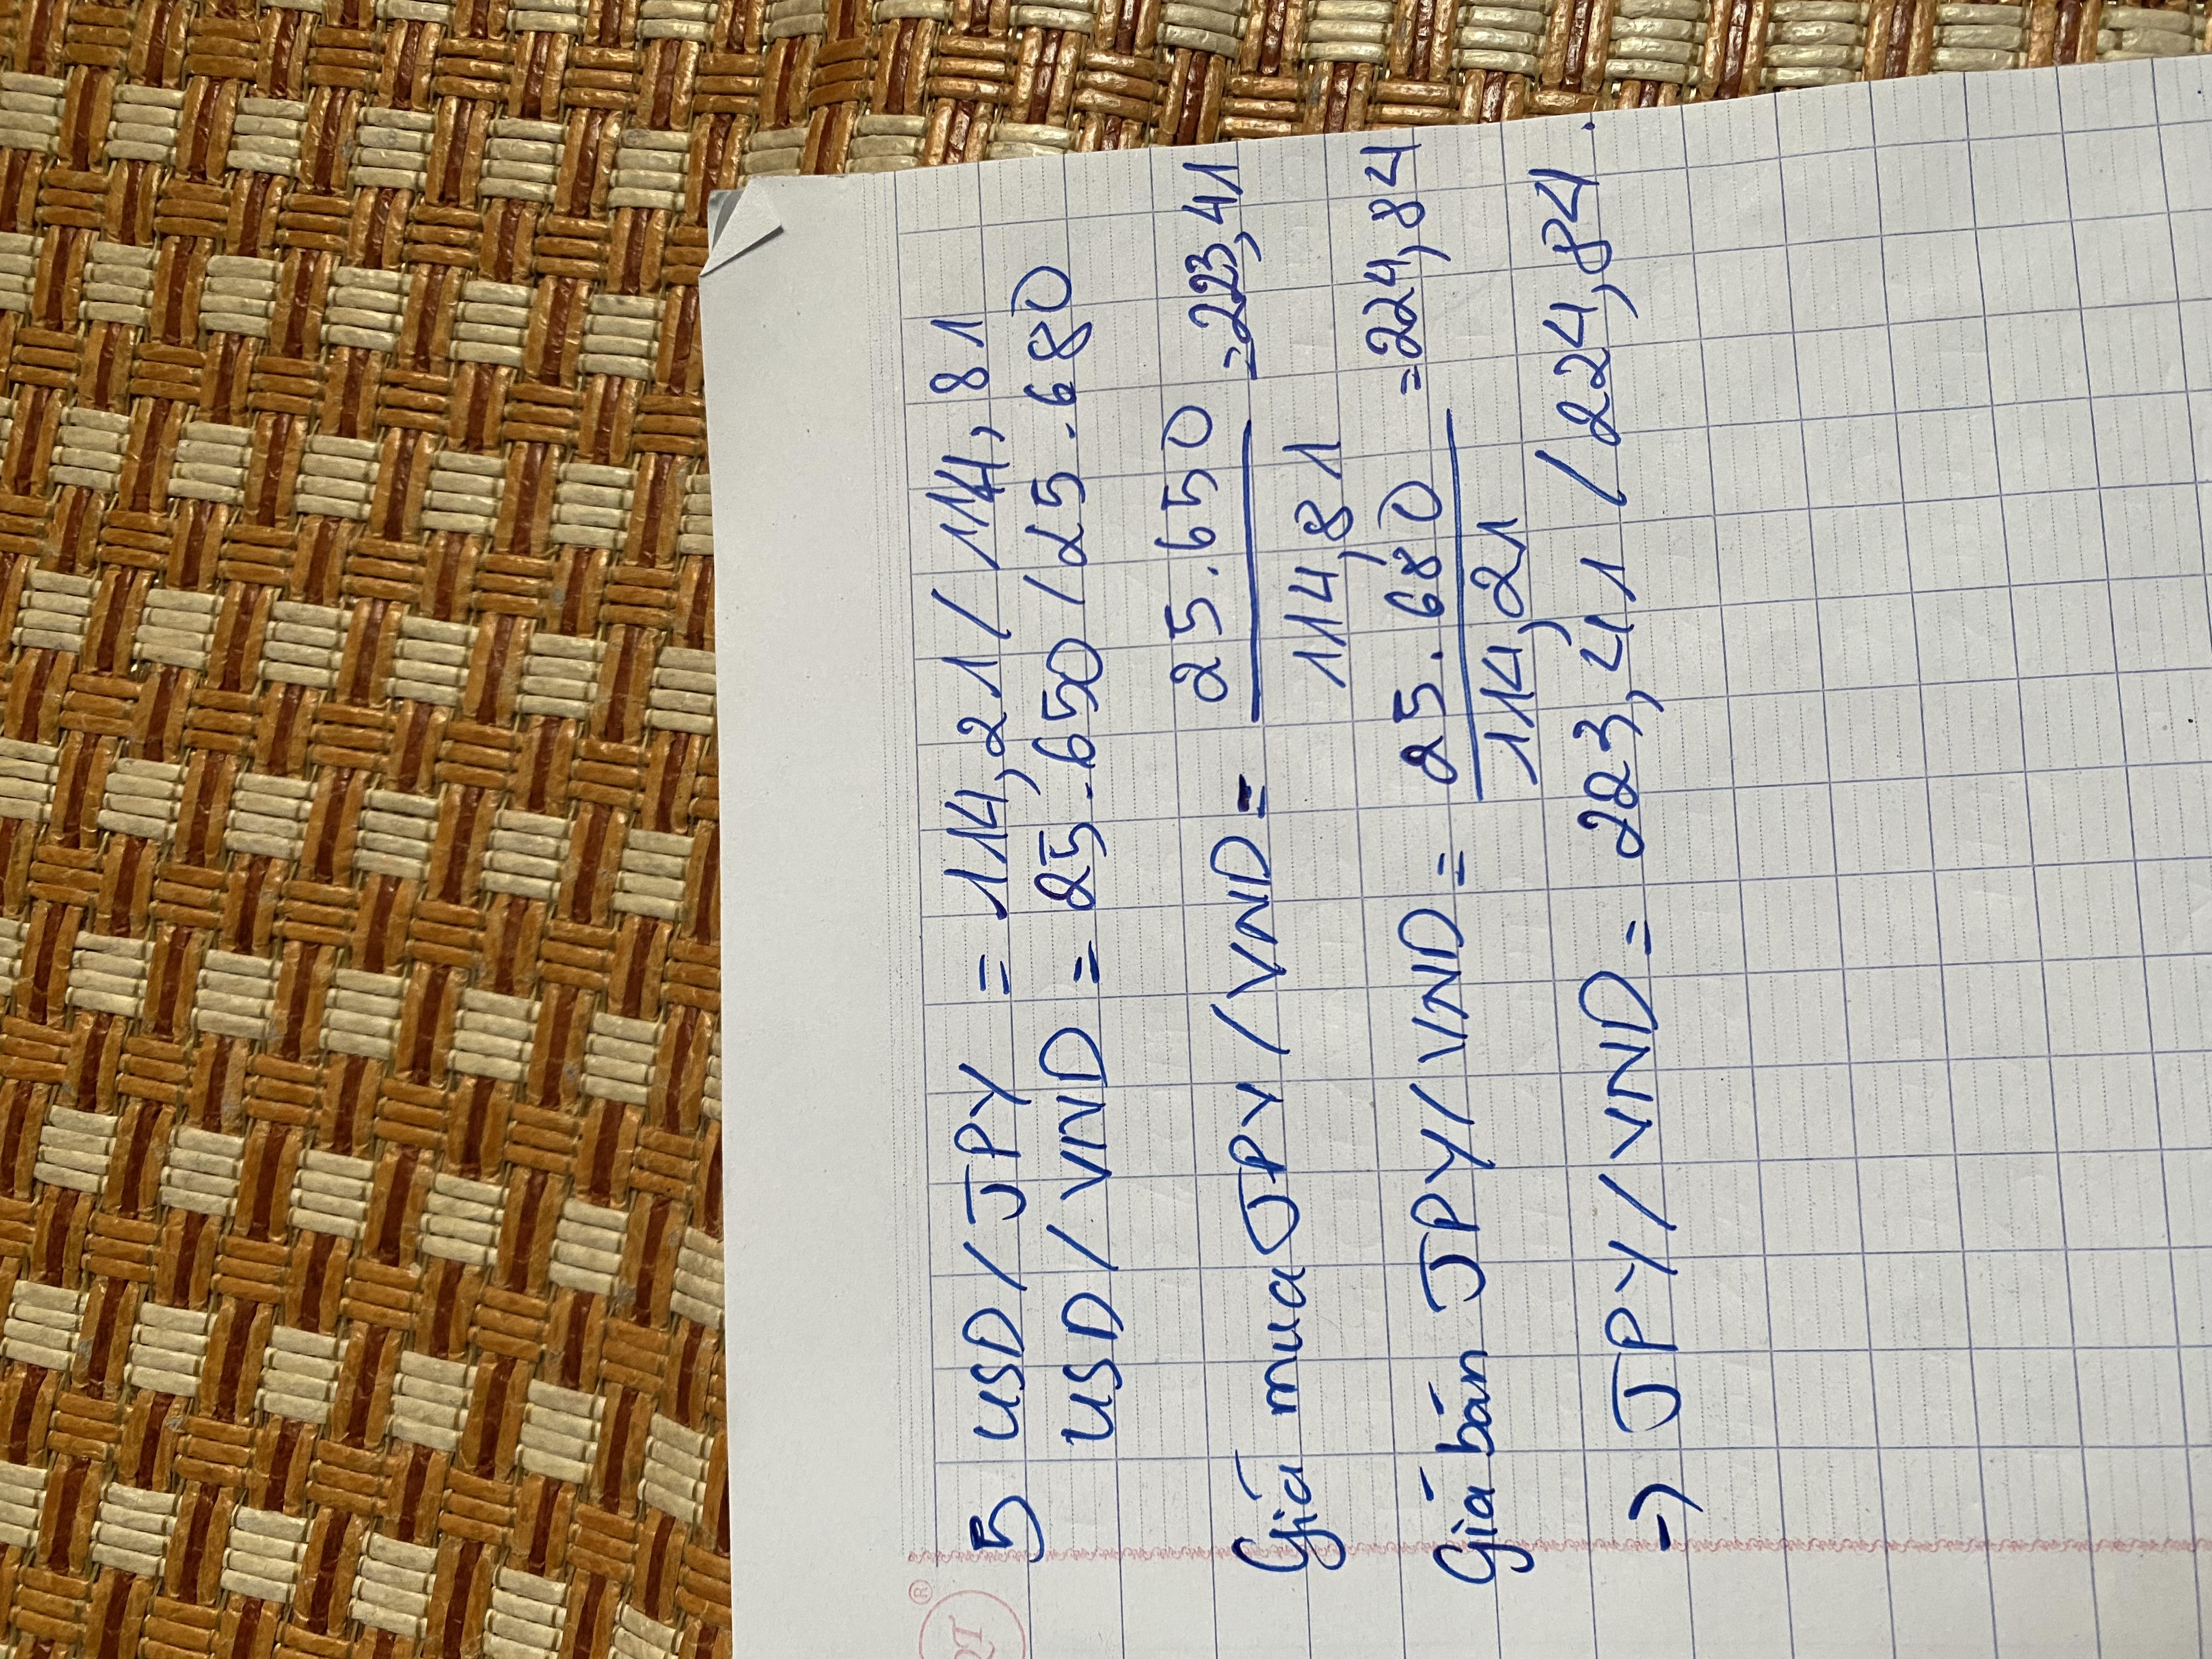 5 USD/JPY = 114,21/114,81
USD/VND = 25.650/25.680
Giá mua JPY/VND = 25.650 / 114,81 = 223,41
Giá bán JPY/VND = 25.680 / 114,21 = 224,84
→ JPY/VND = 223,41/224,84.